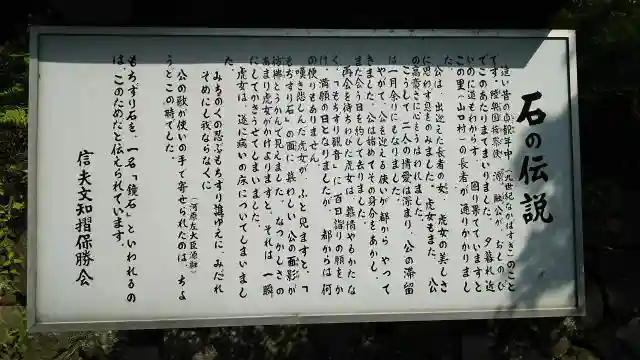 石の伝説
遠い昔の貞観年中(九世紀なかばすぎ)のこと
です。陸奥国按察使 源 融公が、おしのび
でこのあたりまでまいりました。夕暮れ近
いのに道もわからず、困り果てていますと
この里(山口村)の長者が、通りかかりまし
た。
公は、出迎えた長者の女、虎女の美しさ
に思わず息をのみました。虎女もまた、公
の高貴さに心をうばわれました。
こうして二人の情愛は深まり、公の滞留
は一月余りにもなりました。
やがて、公を迎える使いが都から やって
きました。公は始めてその身分をあかし、
また会う日を約して去りました。
再会を待ちわびた虎女は、慕情やるかたな
く、「もちずり観音」に百日詣りの願をか
け、満願の日となりましたが、都からは何
の便りもありません。
嘆き悲しんだ虎女が、ふと見ますと、「
もちずり石」の面に、慕わしい公の面影が
彷彿とうかんで見えました。なつかしさの
あまり虎女がかけよりますと、それは一瞬
にしてかきうせてしまいました。
虎女は、遂に病いの床についてしまいまし
た。
みちのくの忍ぶもちずり誰ゆえに みだれ
そめにし我ならなくに
(河原左大臣源融)
公の歌が使いの手で寄せられたのは、ちょ
うどこの時でした。
もちずり石を、一名「鏡石」といわれるの
は、このためだと伝えられています。
信夫文知摺保勝会